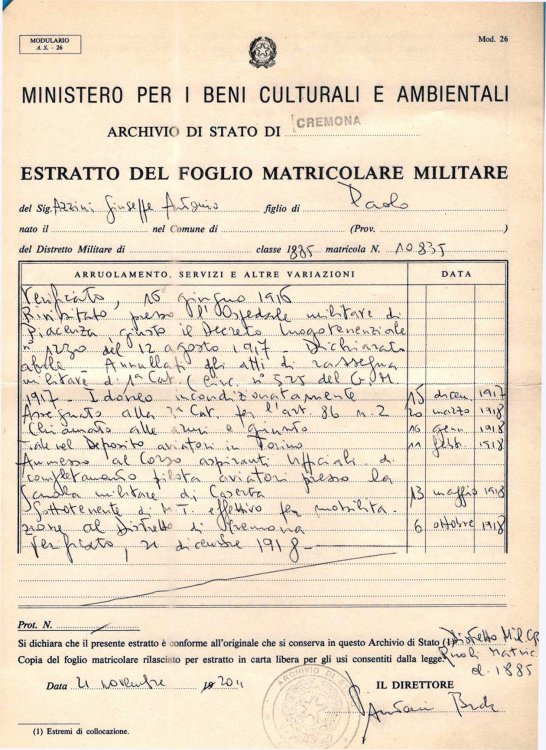 MODULARIO
A. S. - 26
Mod. 26
MINISTERO PER I BENI CULTURALI E AMBIENTALI
ARCHIVIO DI STATO DI CREMONA
ESTRATTO DEL FOGLIO MATRICOLARE MILITARE
del Sig. Azzini Giuseppe Antonio figlio di Paolo
nato il nel Comune di (Prov. )
del Distretto Militare di classe 1885 matricola N. 10835
ARRUOLAMENTO, SERVIZI E ALTRE VARIAZIONI DATA
Verificato, 16 giugno 1916
Rivisitato presso l'Ospedale militare di
Piacenza, giusto il Decreto luogotenenziale
n° 1230 del 12 agosto 1917 - Dichiarato
abile - Annullati gli atti di rassegna
militare di 1a Cat. (Circ. n° 525 del G.M.
1917 - Idoneo incondizionatamente 15 dicem. 1917
Assegnato alla 2a Cat. per l'art. 86 n. 2 20 marzo 1918
Chiamato alle armi e giunto 16 genn. 1918
Tale nel Deposito aviatori in Torino 11 febb. 1918
Ammesso al Corso aspiranti Ufficiali di
completamento pilota aviatori presso la
Scuola militare di Caserta 13 maggio 1918
Sottotenente di M.T. effettivo per mobilita-
zione al Distretto di Cremona 6 ottobre 1918
Verificato, 21 dicembre 1918
Prot. N.
Si dichiara che il presente estratto è conforme all'originale che si conserva in questo Archivio di Stato (1) Distretto Mil. CR
Copia del foglio matricolare rilasciato per estratto in carta libera per gli usi consentiti dalla legge. Ruoli Matric.
cl. 1885
Data 21 novembre 2011 IL DIRETTORE
ARCHIVIO DI
(1) Estremi di collocazione.